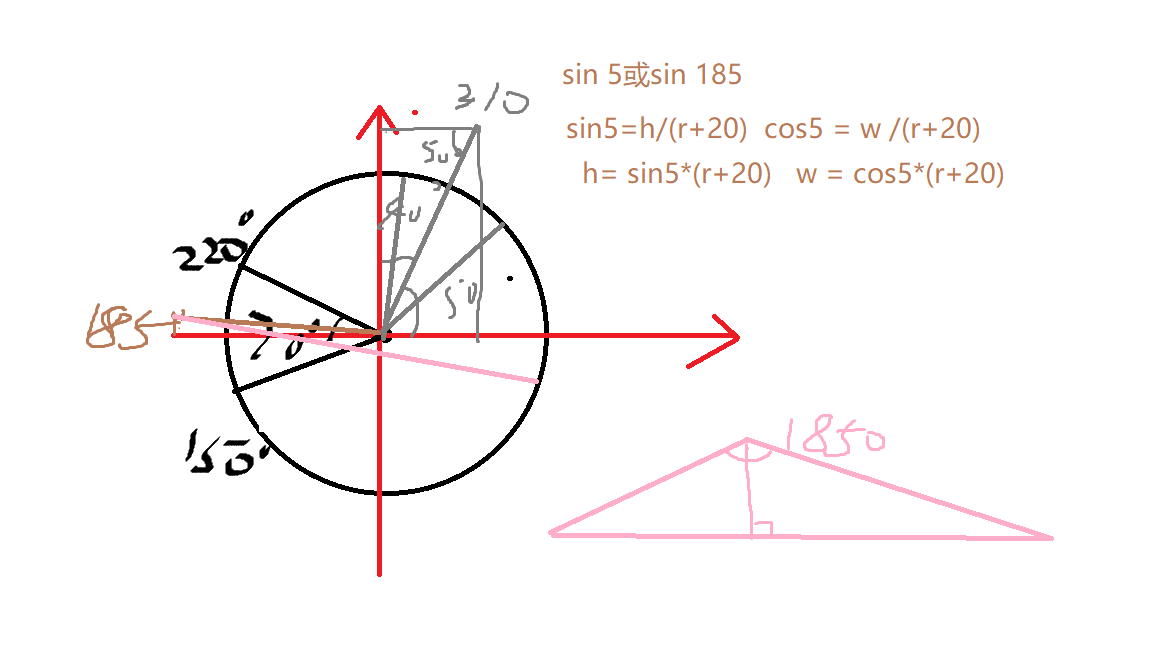 sin 5或sin 185
310
sin5=h/(r+20) cos5 = w /(r+20)
h= sin5*(r+20) w = cos5*(r+20)
220°
185
70°
150°
185°